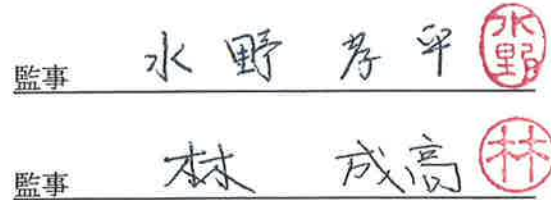 監事 水野 孝平 水野
監事 林 成高 林